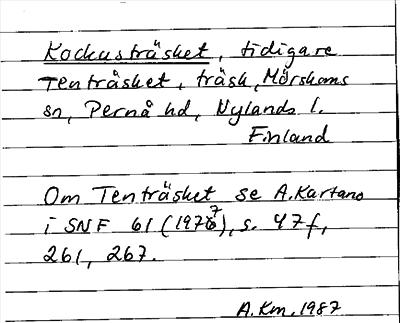 Kockusträsket, tidigare
Tenträsket, träsk, Mörskoms
sn, Pernå hd, Nylands l.
Finland
Om Tenträsket se A. Kartano
i SNF 61 (1977), s. 47f,
261, 267.
A.Km. 1987